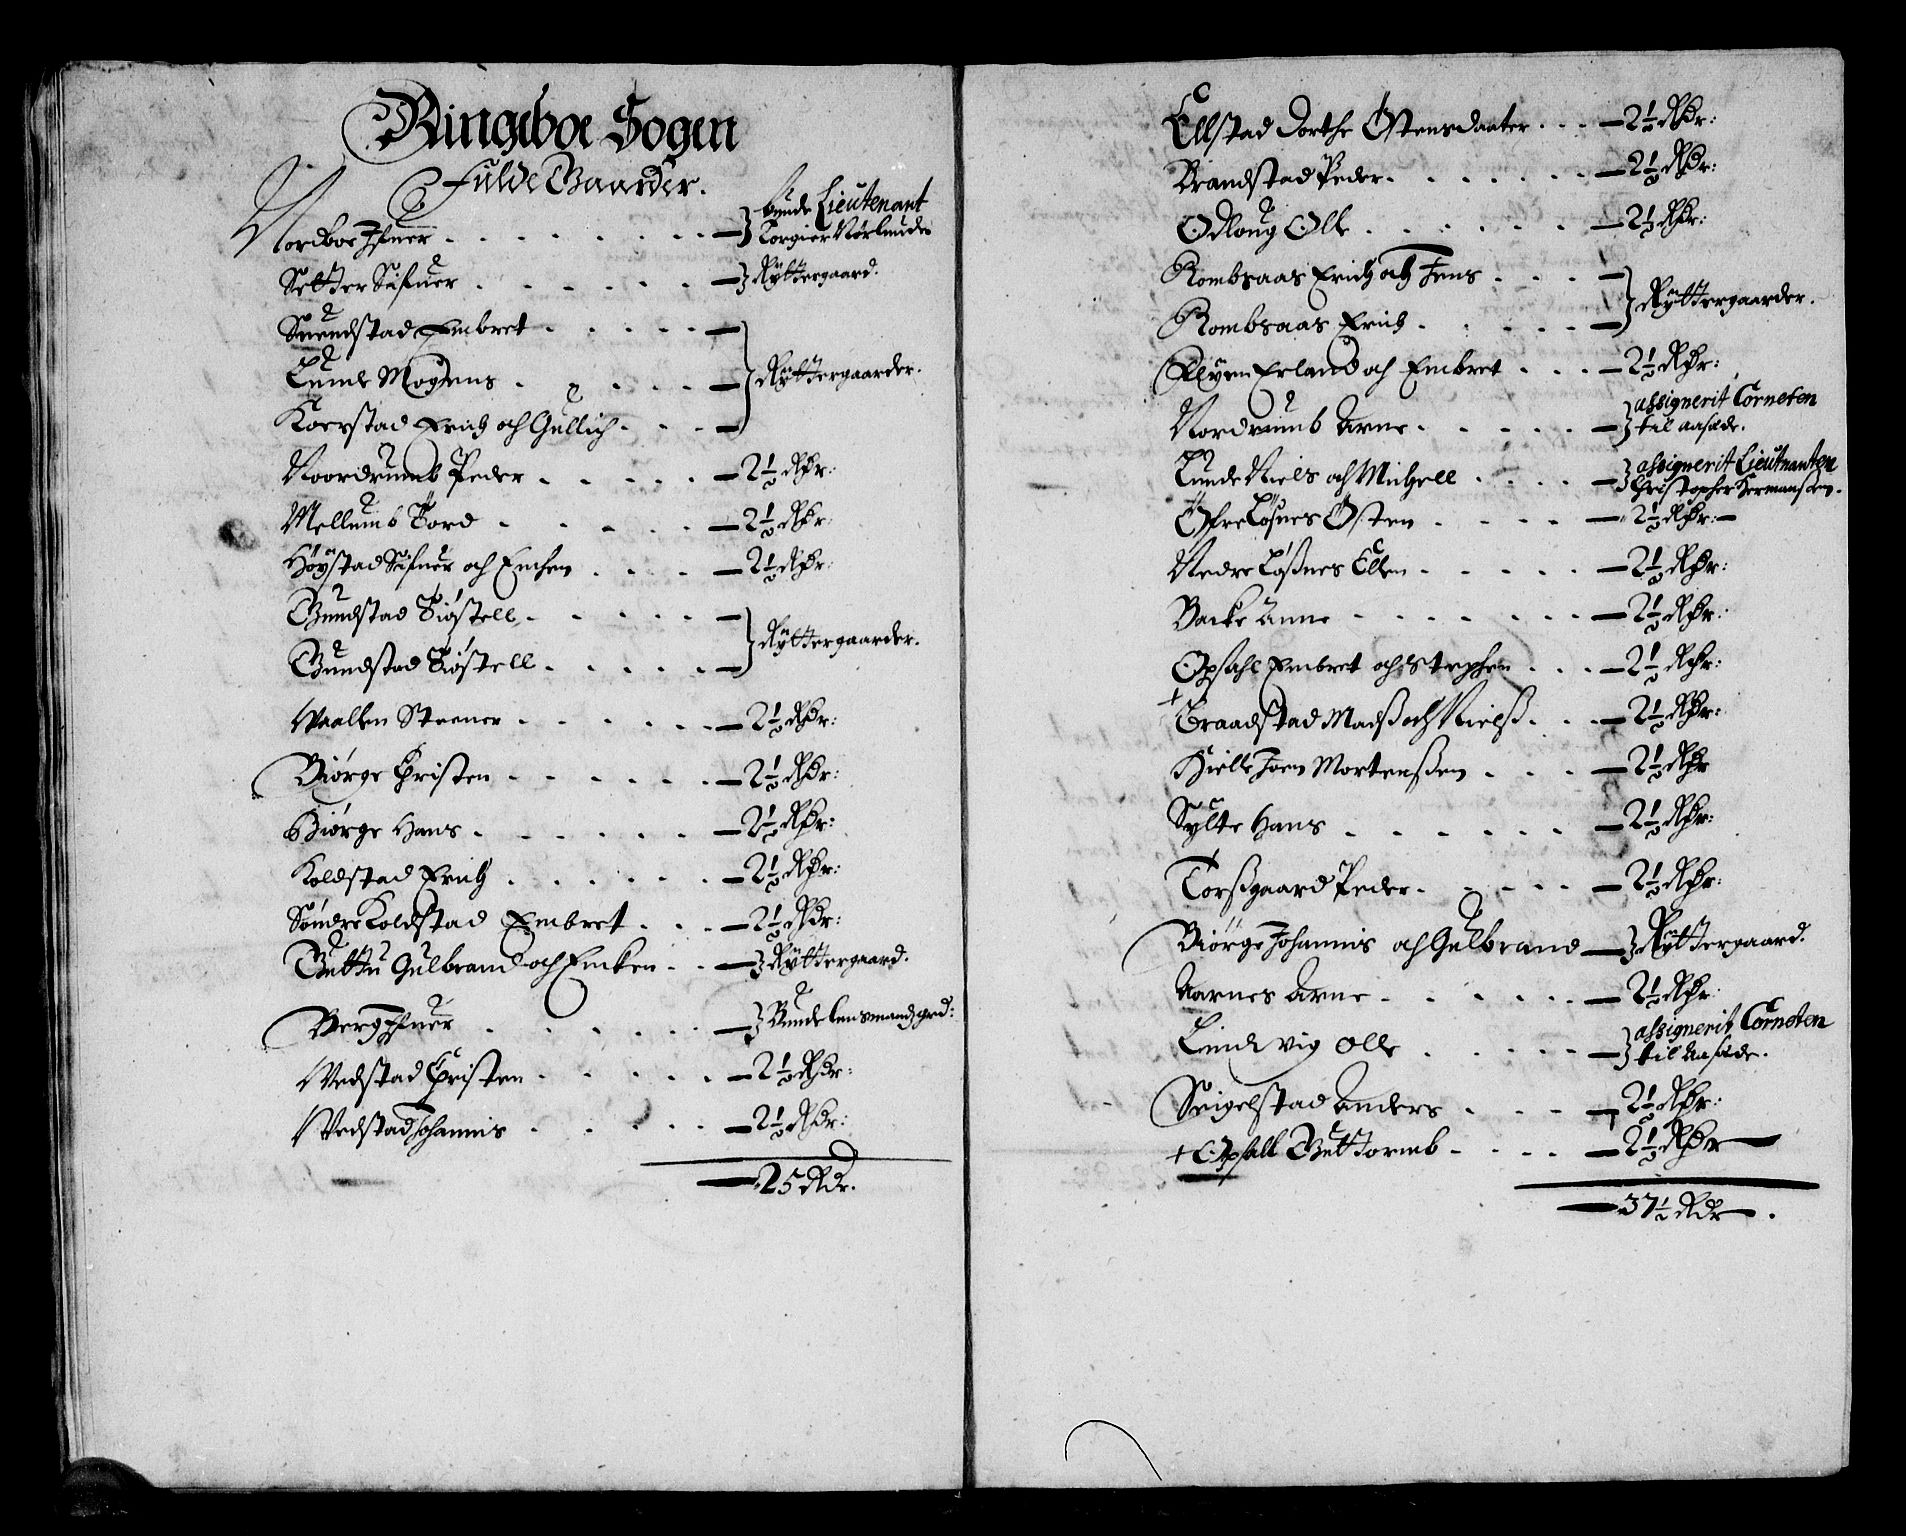 Ringeboe Sogen
Fulde Gaarder.
Nordboe Ifuer - - - } bunde Lieutenant
Torgier Nörlunde
Setter Sifuer - - - } Ryttergaard.
Suendstad Embret - - -
Lunde Mogens - - - } Ryttergaarder.
Koerstad Erich och Gullich - - -
Noordrumb Peder - - - 2½ Rdr:
Mellumb Tord - - - 2½ Rdr:
Höystad Sifuer och - - - 2½ Rdr:
Gundstad Kiöstell - - -
Gundstad Kiöstell - - - } Ryttergaarder.
Waallen Steener - - - 2½ Rdr:
Biörge Christen - - - 2½ Rdr:
Biörge Hans - - - 2½ Rdr:
Koldstad Erich - - - 2½ Rdr:
Söndre Koldstad Embret - - - 2½ Rdr:
Guttu Gulbrand och Encken - - } Ryttergaard.
Berg Ifuer - - - } Bundelensmandz grd:
Wedstad Christen - - - 2½ Rdr:
Wedstad Johannis - - - 2½ Rdr:
25 Rdr.
Ellstad Dorthe Östensdaater - - - 2½ Rdr:
Brandstad Peder - - - 2½ Rdr:
Odloug Olle - - - 2½ Rdr:
Rombsaas Erich och Jens - - -
Rombsaas Erich - - - } Ryttergaarder.
Elyen Erland och Embret - - - 2½ Rdr:
Nordrumb Arne - - - } assignerit Corneten
til aasæde.
Lunde Niels och Michell - - - } assignerit Lieutnanten
Christopher Hermansen.
Öfre Lösnes Östen - - - 2½ Rdr:
Nedre Lößnes Ellen - - - 2½ Rdr:
Backe Anne - - - 2½ Rdr:
Opsahl Embret och Stephen - - - 2½ Rdr:
+ Traadstad Madß och Nielß - - - 2½ Rdr:
Kielle Joen Mortenßen - - - 2½ Rdr
Sylte Hans - - - 2½ Rdr:
Torßgaard Peder - - - 2½ Rdr:
Biörge Johannis och Gulbrand } Ryttergaard.
Aarnes Arne - - - 2½ Rdr:
Lundvig Olle - - - } assignerit Corneten
til Aasæde.
Seigelstad Anders - - - 2½ Rdr:
+ Opsall Guttormb - - - 2½ Rdr
37½ Rdr.